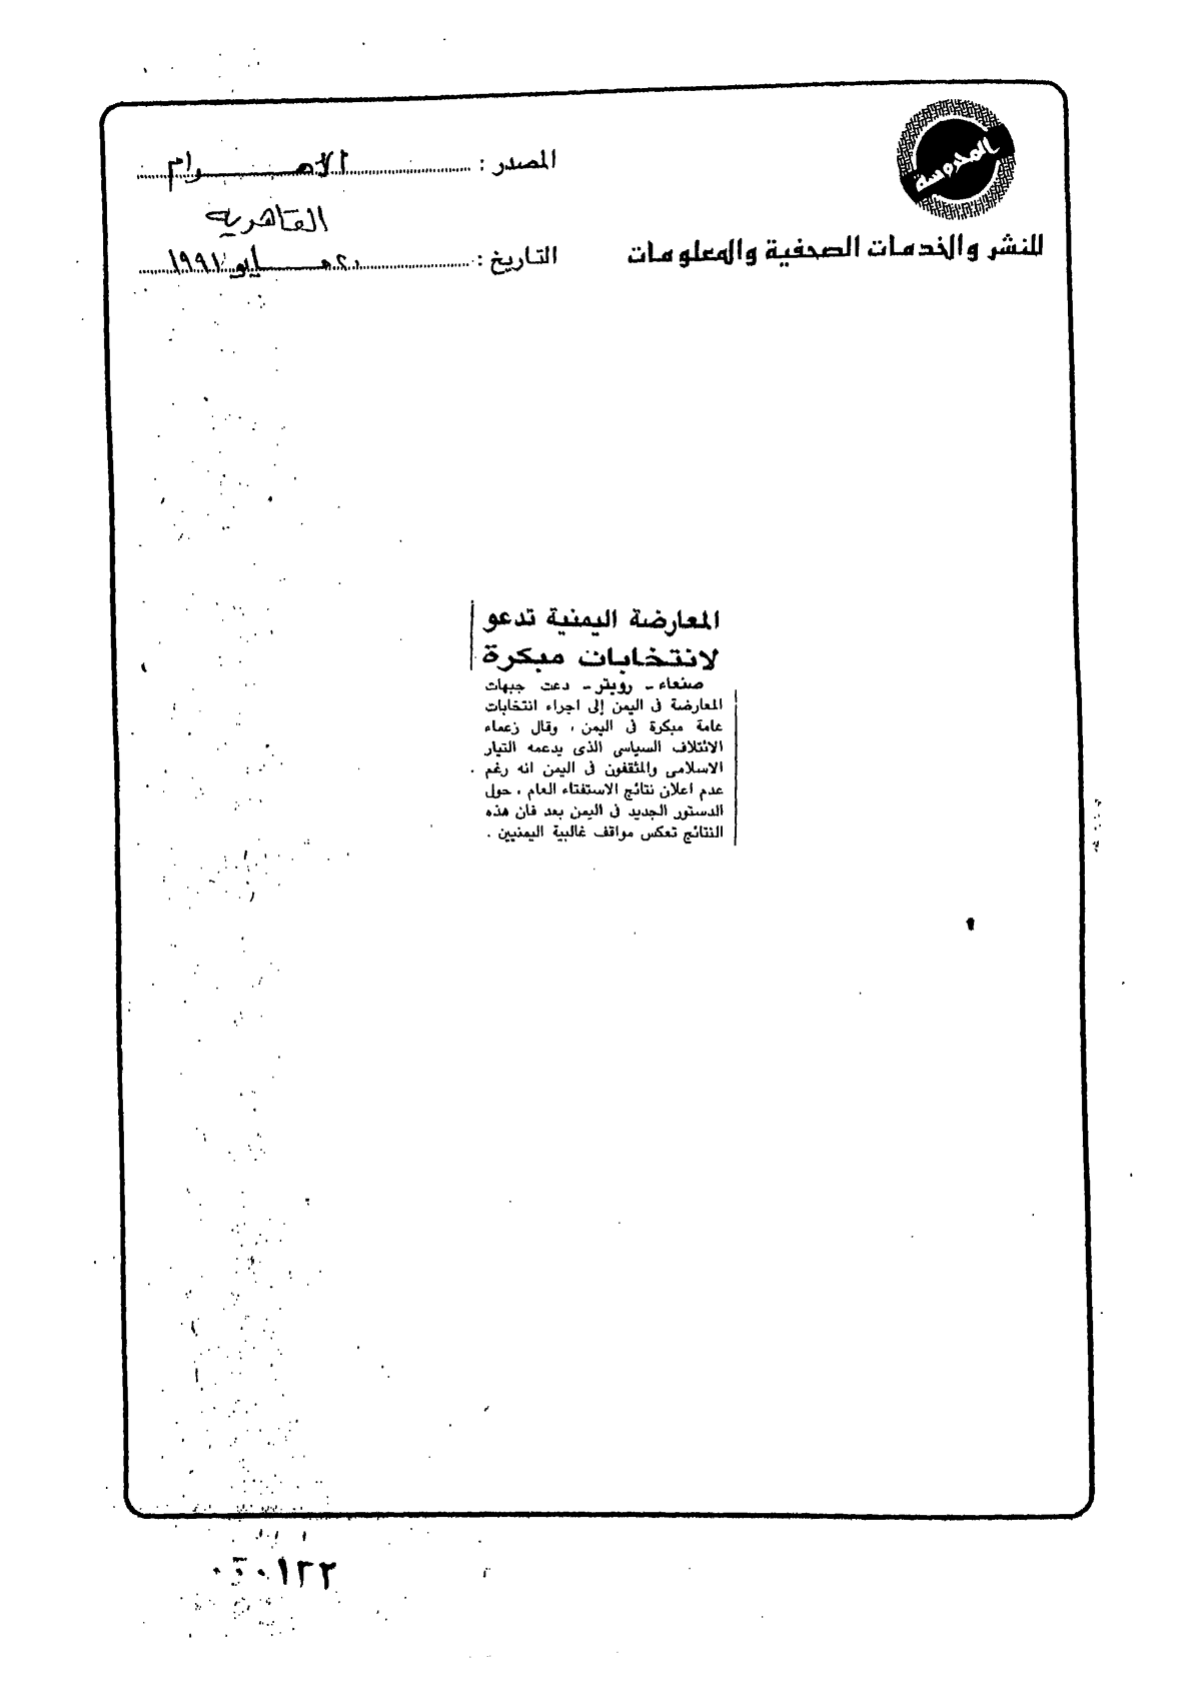 المحروسة
للنشر والخدمات الصحفية والمعلومات
المصدر : الأهرام
القاهرية
التاريخ : مايو ١٩٩١
المعارضة اليمنية تدعو
لانتخابات مبكرة
صنعاء ـ رويتر ـ دعت جبهات
المعارضة فى اليمن إلى اجراء انتخابات
عامة مبكرة فى اليمن ، وقال زعماء
الائتلاف السياسى الذى يدعمه التيار
الاسلامى والمثقفون فى اليمن انه رغم
عدم اعلان نتائج الاستفتاء العام ، حول
الدستور الجديد فى اليمن بعد فان هذه
النتائج تعكس مواقف غالبية اليمنيين .